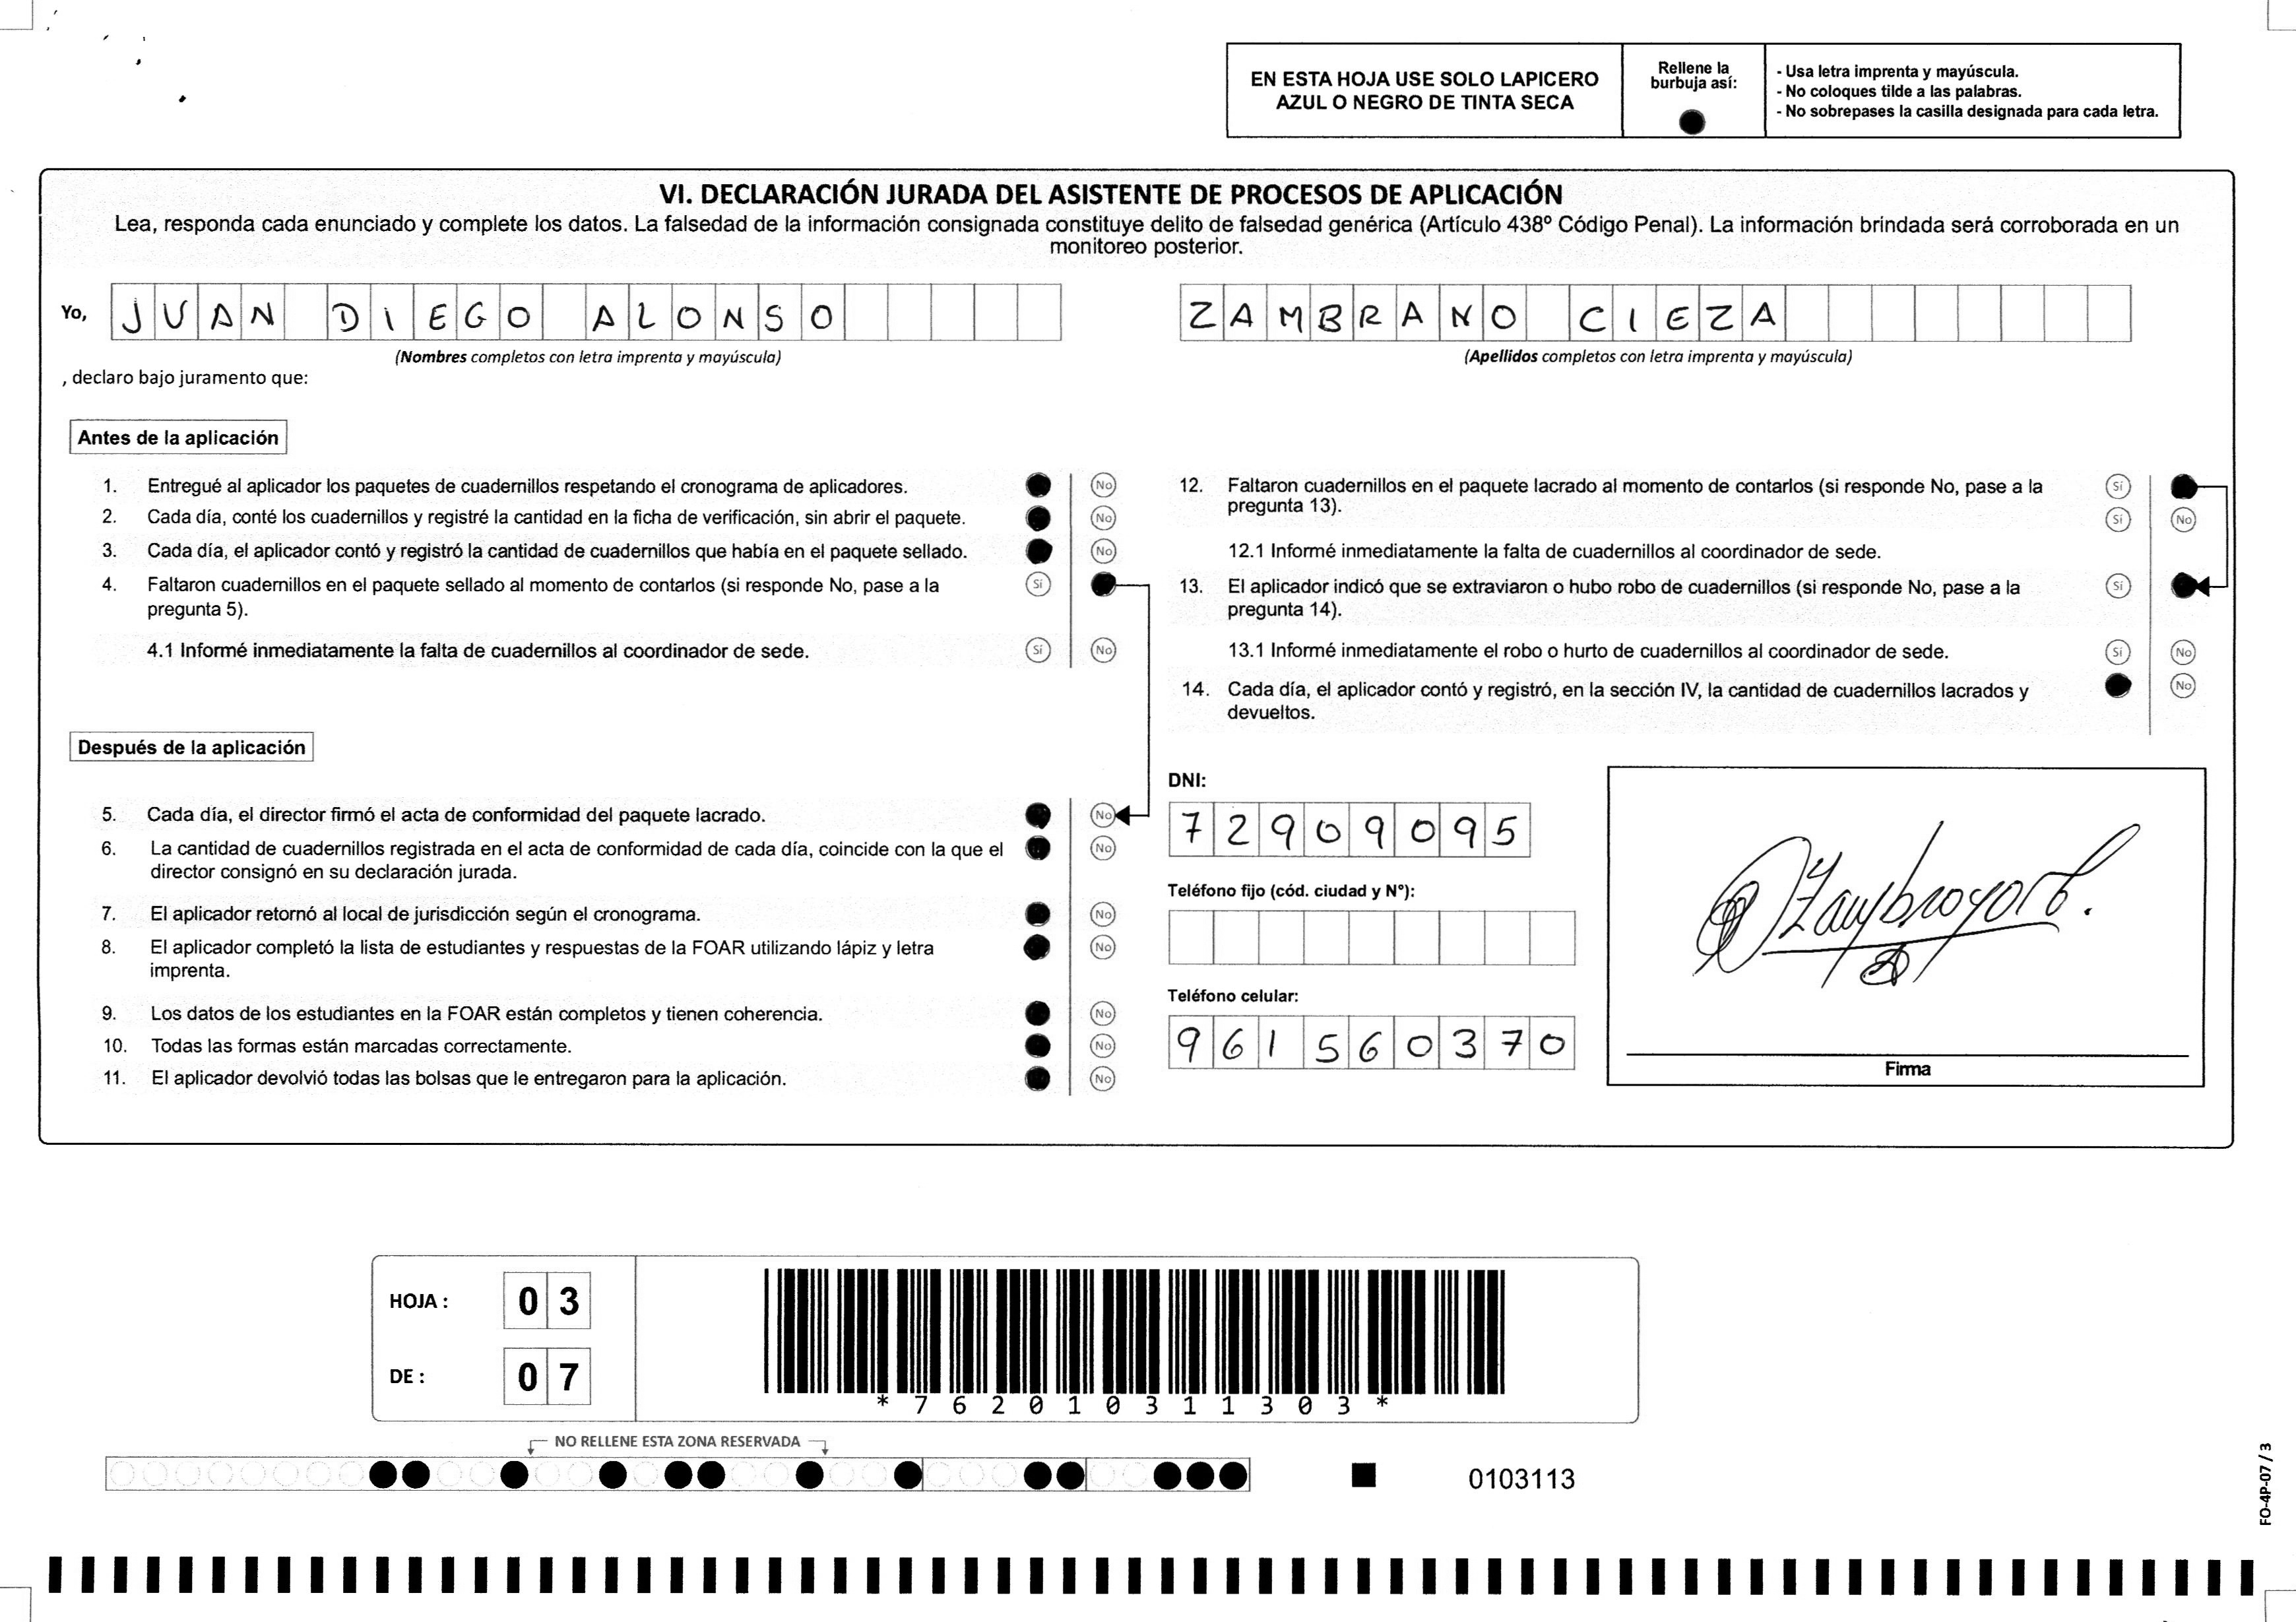 EN ESTA HOJA USE SOLO LAPICERO
AZUL O NEGRO DE TINTA SECA
Rellene la
burbuja así:
- Usa letra imprenta y mayúscula.
- No coloques tilde a las palabras.
- No sobrepases la casilla designada para cada letra.
VI. DECLARACIÓN JURADA DEL ASISTENTE DE PROCESOS DE APLICACIÓN
Lea, responda cada enunciado y complete los datos. La falsedad de la información consignada constituye delito de falsedad genérica (Artículo 438º Código Penal). La información brindada será corroborada en un
monitoreo posterior.
Yo, JUAN DIEGO ALONSO ZAMBRANO CIEZA
(Nombres completos con letra imprenta y mayúscula) (Apellidos completos con letra imprenta y mayúscula)
, declaro bajo juramento que:
Antes de la aplicación
1. Entregué al aplicador los paquetes de cuadernillos respetando el cronograma de aplicadores. No
2. Cada día, conté los cuadernillos y registré la cantidad en la ficha de verificación, sin abrir el paquete. No
3. Cada día, el aplicador contó y registró la cantidad de cuadernillos que había en el paquete sellado. No
4. Faltaron cuadernillos en el paquete sellado al momento de contarlos (si responde No, pase a la Sí
pregunta 5).
4.1 Informé inmediatamente la falta de cuadernillos al coordinador de sede. Sí No
Después de la aplicación
5. Cada día, el director firmó el acta de conformidad del paquete lacrado. No
6. La cantidad de cuadernillos registrada en el acta de conformidad de cada día, coincide con la que el No
director consignó en su declaración jurada.
7. El aplicador retornó al local de jurisdicción según el cronograma. No
8. El aplicador completó la lista de estudiantes y respuestas de la FOAR utilizando lápiz y letra No
imprenta.
9. Los datos de los estudiantes en la FOAR están completos y tienen coherencia. No
10. Todas las formas están marcadas correctamente. No
11. El aplicador devolvió todas las bolsas que le entregaron para la aplicación. No
12. Faltaron cuadernillos en el paquete lacrado al momento de contarlos (si responde No, pase a la Sí
pregunta 13). Sí No
12.1 Informé inmediatamente la falta de cuadernillos al coordinador de sede.
13. El aplicador indicó que se extraviaron o hubo robo de cuadernillos (si responde No, pase a la Sí
pregunta 14).
13.1 Informé inmediatamente el robo o hurto de cuadernillos al coordinador de sede. Sí No
14. Cada día, el aplicador contó y registró, en la sección IV, la cantidad de cuadernillos lacrados y No
devueltos.
DNI:
72909095
Teléfono fijo (cód. ciudad y N°):
Teléfono celular:
961560370
Firma
HOJA : 03
DE : 07
*762010311303*
NO RELLENE ESTA ZONA RESERVADA
0103113
FO-4P-07 / 3